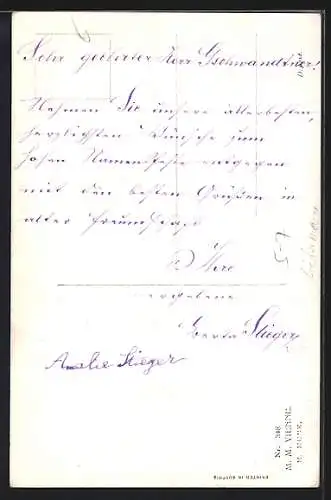 Sehr geehrter Herr Gschwandtner!
Nehmen Sie unsere allerbesten,
herzlichsten Wünsche zum
hohen Namensfeste entgegen
mit den besten Grüßen in
alter Freundschaft
Ihre
ergebene
Berta Stieger
Amalie Stieger
Nr. 348
M. M. VIENNE.
M. MUNK,